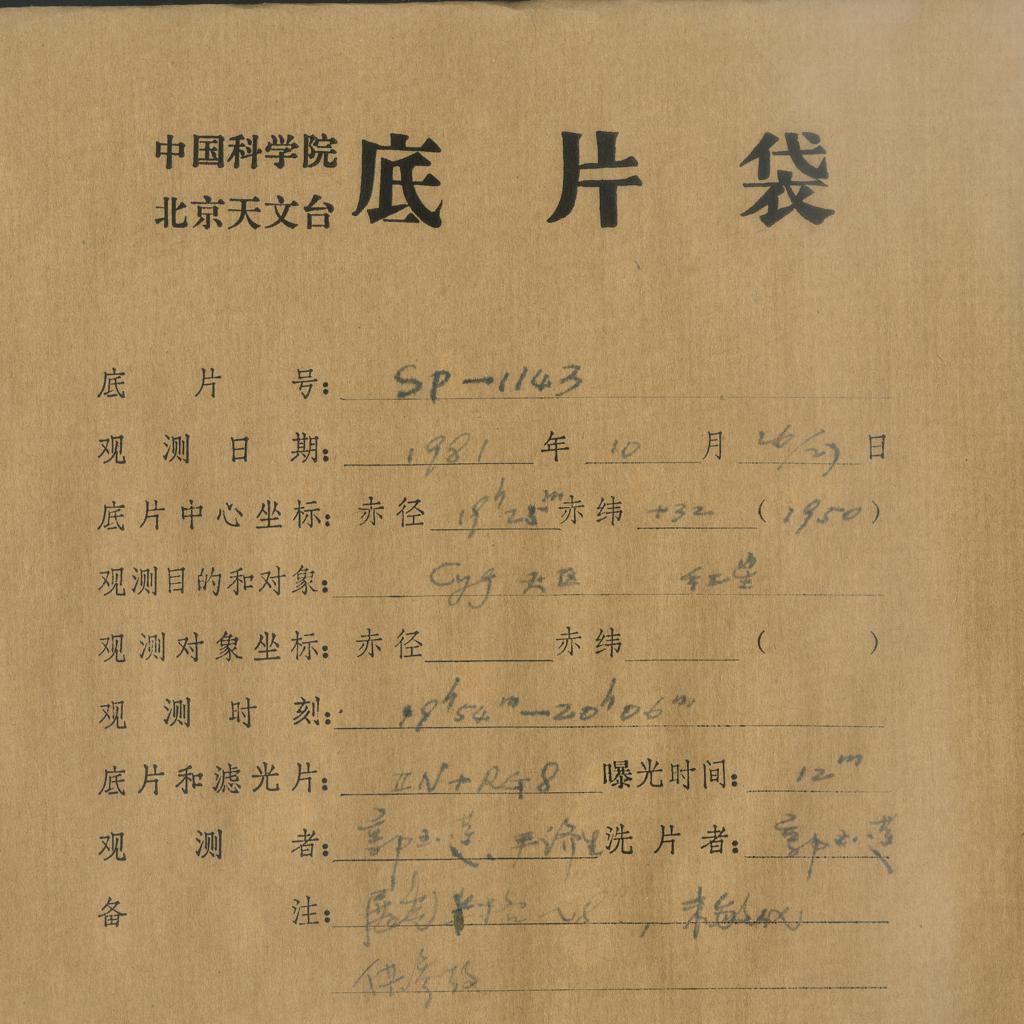 中国科学院
北京天文台 底片袋
底片号: SP-1143
观测日期: 1981 年 10 月 26/27 日
底片中心坐标: 赤径 19h25m 赤纬 +32 (1950)
观测目的和对象: Cyg 天区 红星
观测对象坐标: 赤径 赤纬 ( )
观测时刻: 19h54m—20h06m
底片和滤光片: IN+RG8 曝光时间: 12m
观测者: 郭玉莲、 洗片者: 郭玉莲
备注: , 未敏化
供参考